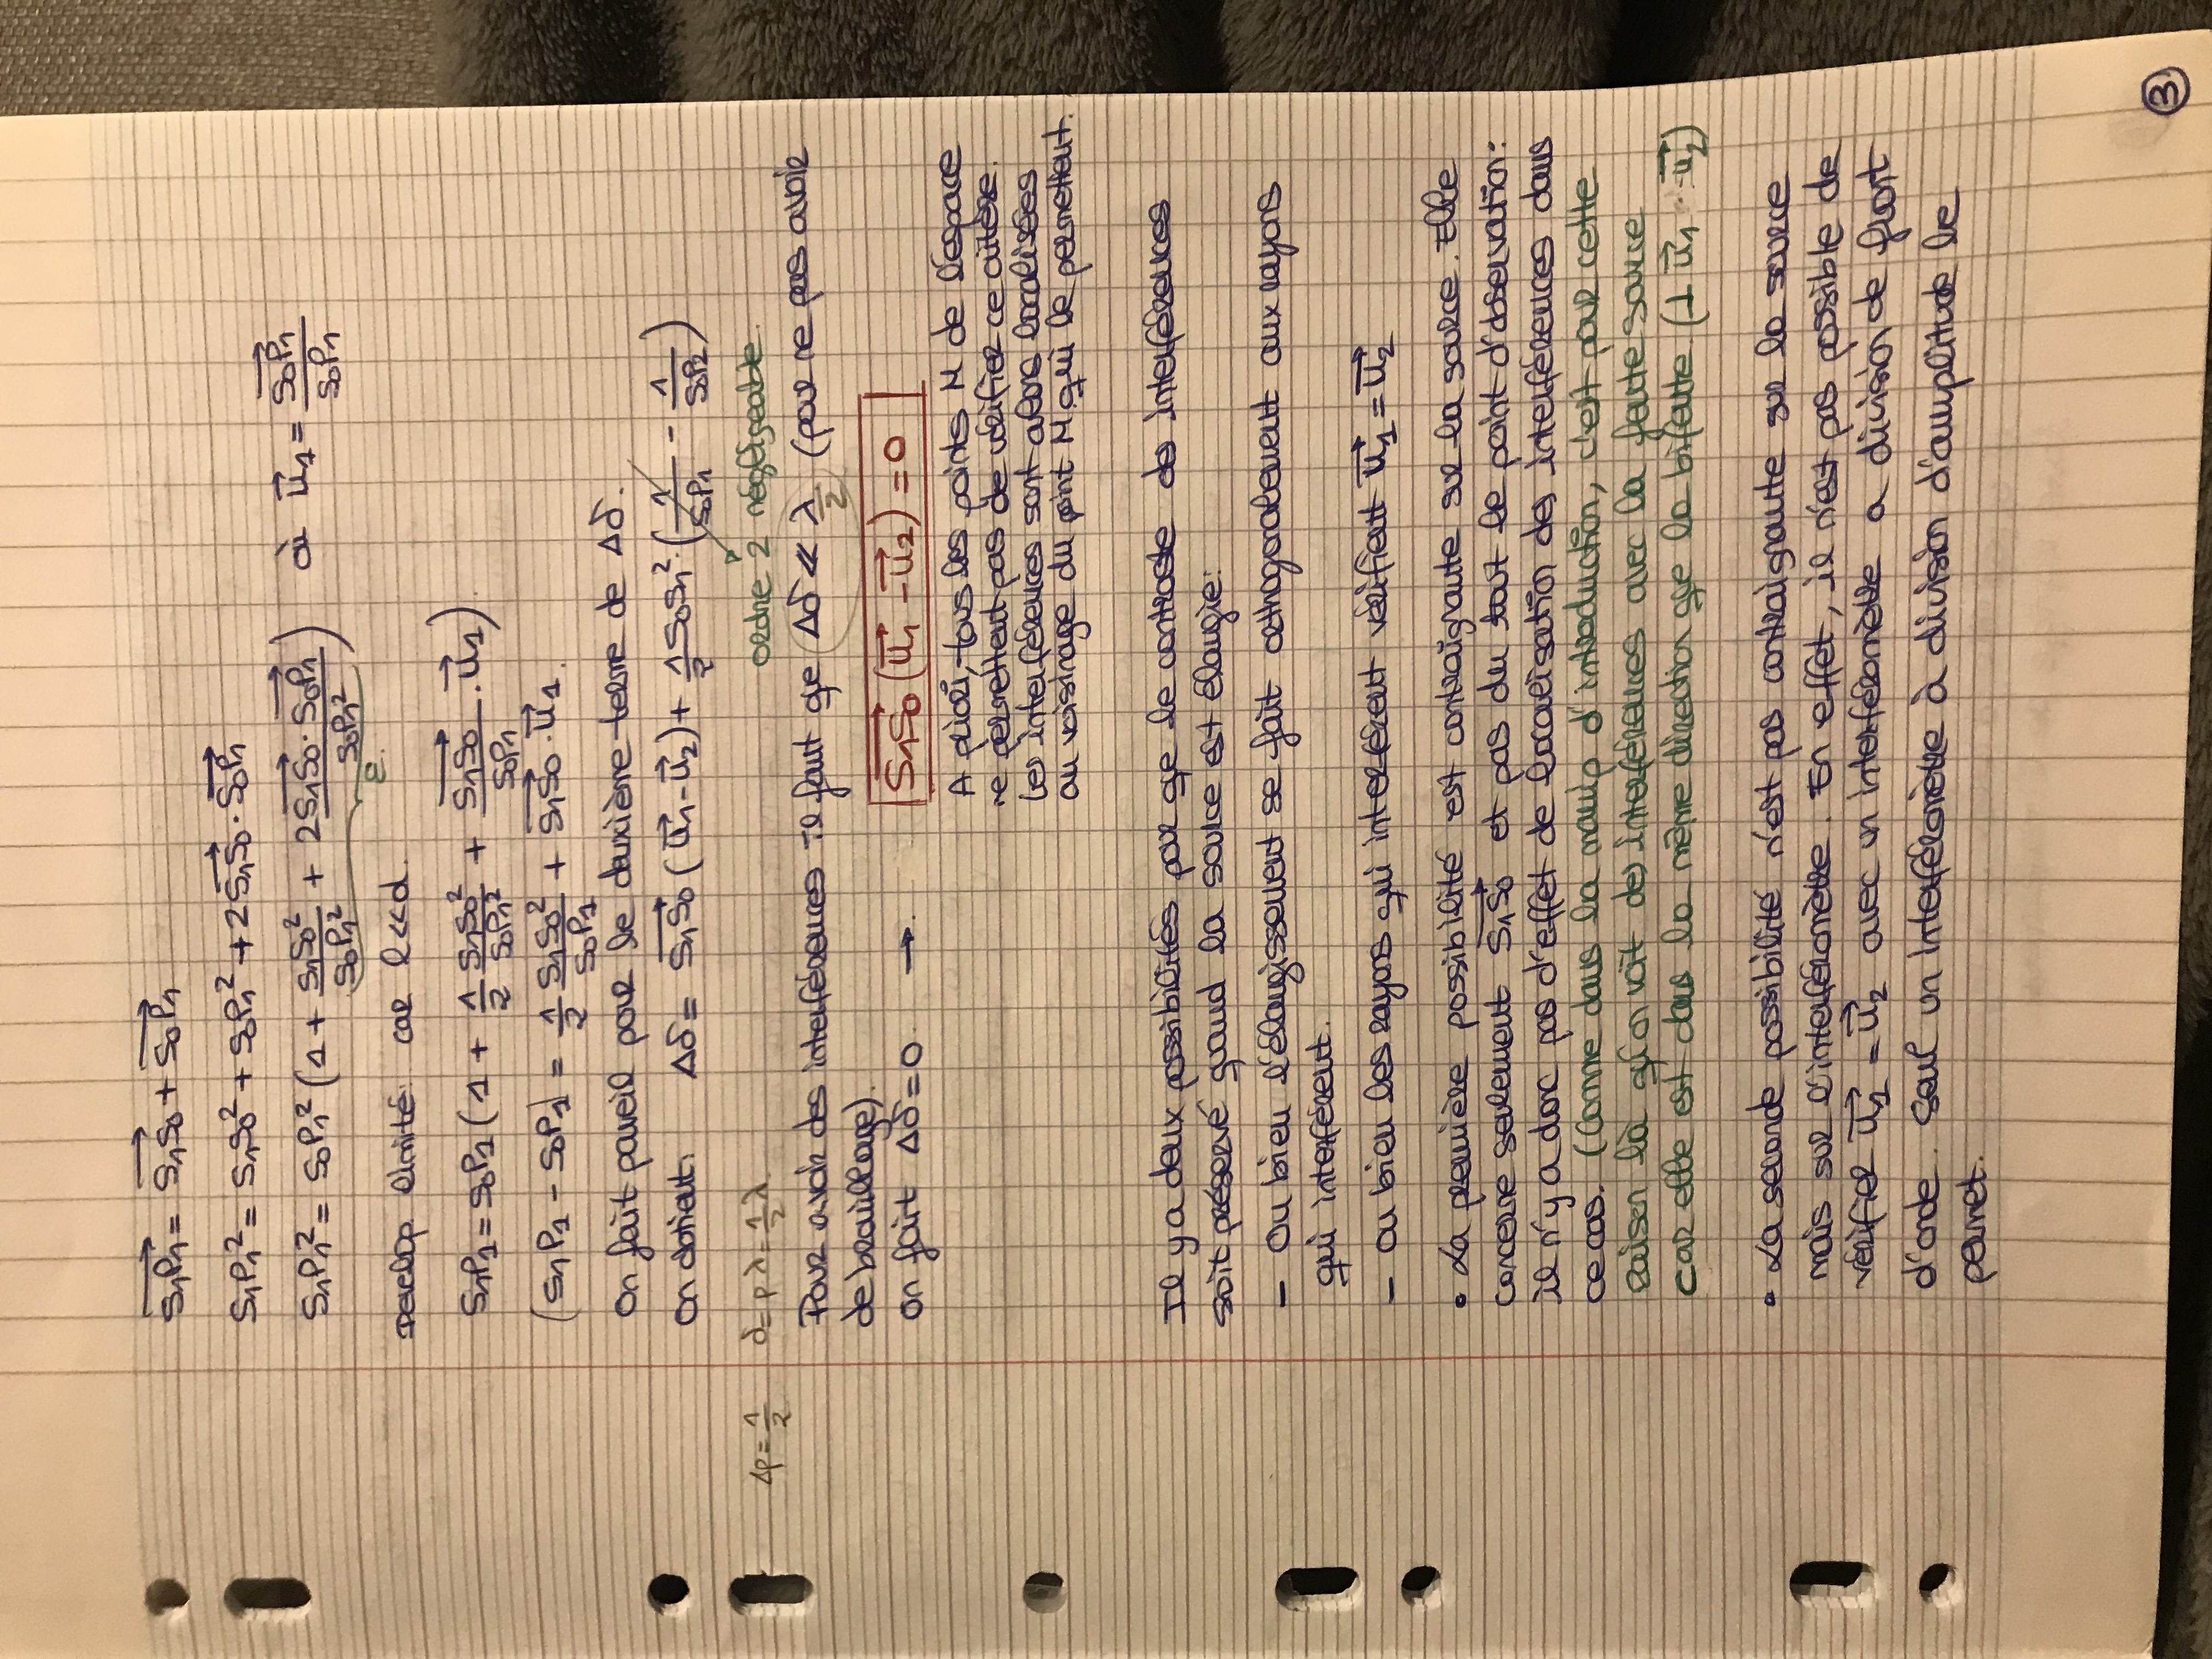 S₁P₁⃗ = S₁S₀⃗ + S₀P₁⃗
S₁P₁² = S₁S₀² + S₀P₁² + 2 S₁S₀⃗ · S₀P₁⃗
S₁P₁² = S₀P₁² (1 + S₁S₀²/S₀P₁² + 2 S₁S₀⃗ · S₀P₁⃗/S₀P₁²) où u⃗₁ = S₀P₁⃗/S₀P₁
ε.
Develop. limité: car l<<d.
S₁P₁ = S₀P₁ (1 + 1/2 S₁S₀²/S₀P₁² + S₁S₀⃗/S₀P₁ · u⃗₁)
(S₁P₁ - S₀P₁) = 1/2 S₁S₀²/S₀P₁ + S₁S₀⃗ · u⃗₁.
On fait pareil pour le deuxième terme de Δδ.
On obtient: Δδ = S₁S₀⃗ (u⃗₁ - u⃗₂) + 1/2 S₀S₁² · (1/S₀P₁ - 1/S₀P₂)
ordre 2 négligeable.
Δp = 1/2 δ = pλ = 1/2 λ
Pour avoir des interférences il faut que Δδ << λ/2 (pour ne pas avoir
de brouillage).
On fait Δδ = 0 → S₁S₀⃗ (u⃗₁ - u⃗₂) = 0
A priori, tous les points M de l'espace
ne permettent pas de vérifier ce critère.
Les interférences sont alors localisées
au voisinage du point M qui le permettent.
Il y a deux possibilités pour que le contraste des interférences
soit préservé quand la source est élargie:
- Ou bien l'élargissement se fait orthogonalement aux rayons
qui interfèrent.
- Ou bien les rayons qui interfèrent vérifient u⃗₁ = u⃗₂
• La première possibilité est contraignante sur la source. Elle
concerne seulement S₁S₀⃗ et pas du tout le point d'observation:
il n'y a donc pas d'effet de localisation des interférences dans
ce cas. (Comme dans la manip d'introduction, c'est pour cette
raison là qu'on voit des interférences avec la fente source
car elle est dans la même direction que la bifente. (⊥ u⃗₁ - u⃗₂)
• La seconde possibilité n'est pas contraignante sur la source
mais sur l'interféromètre. En effet, il n'est pas possible de
vérifier u⃗₁ = u⃗₂ avec un interféromètre a division de front
d'onde. Seul un interféromètre à division d'amplitude le
permet.
3